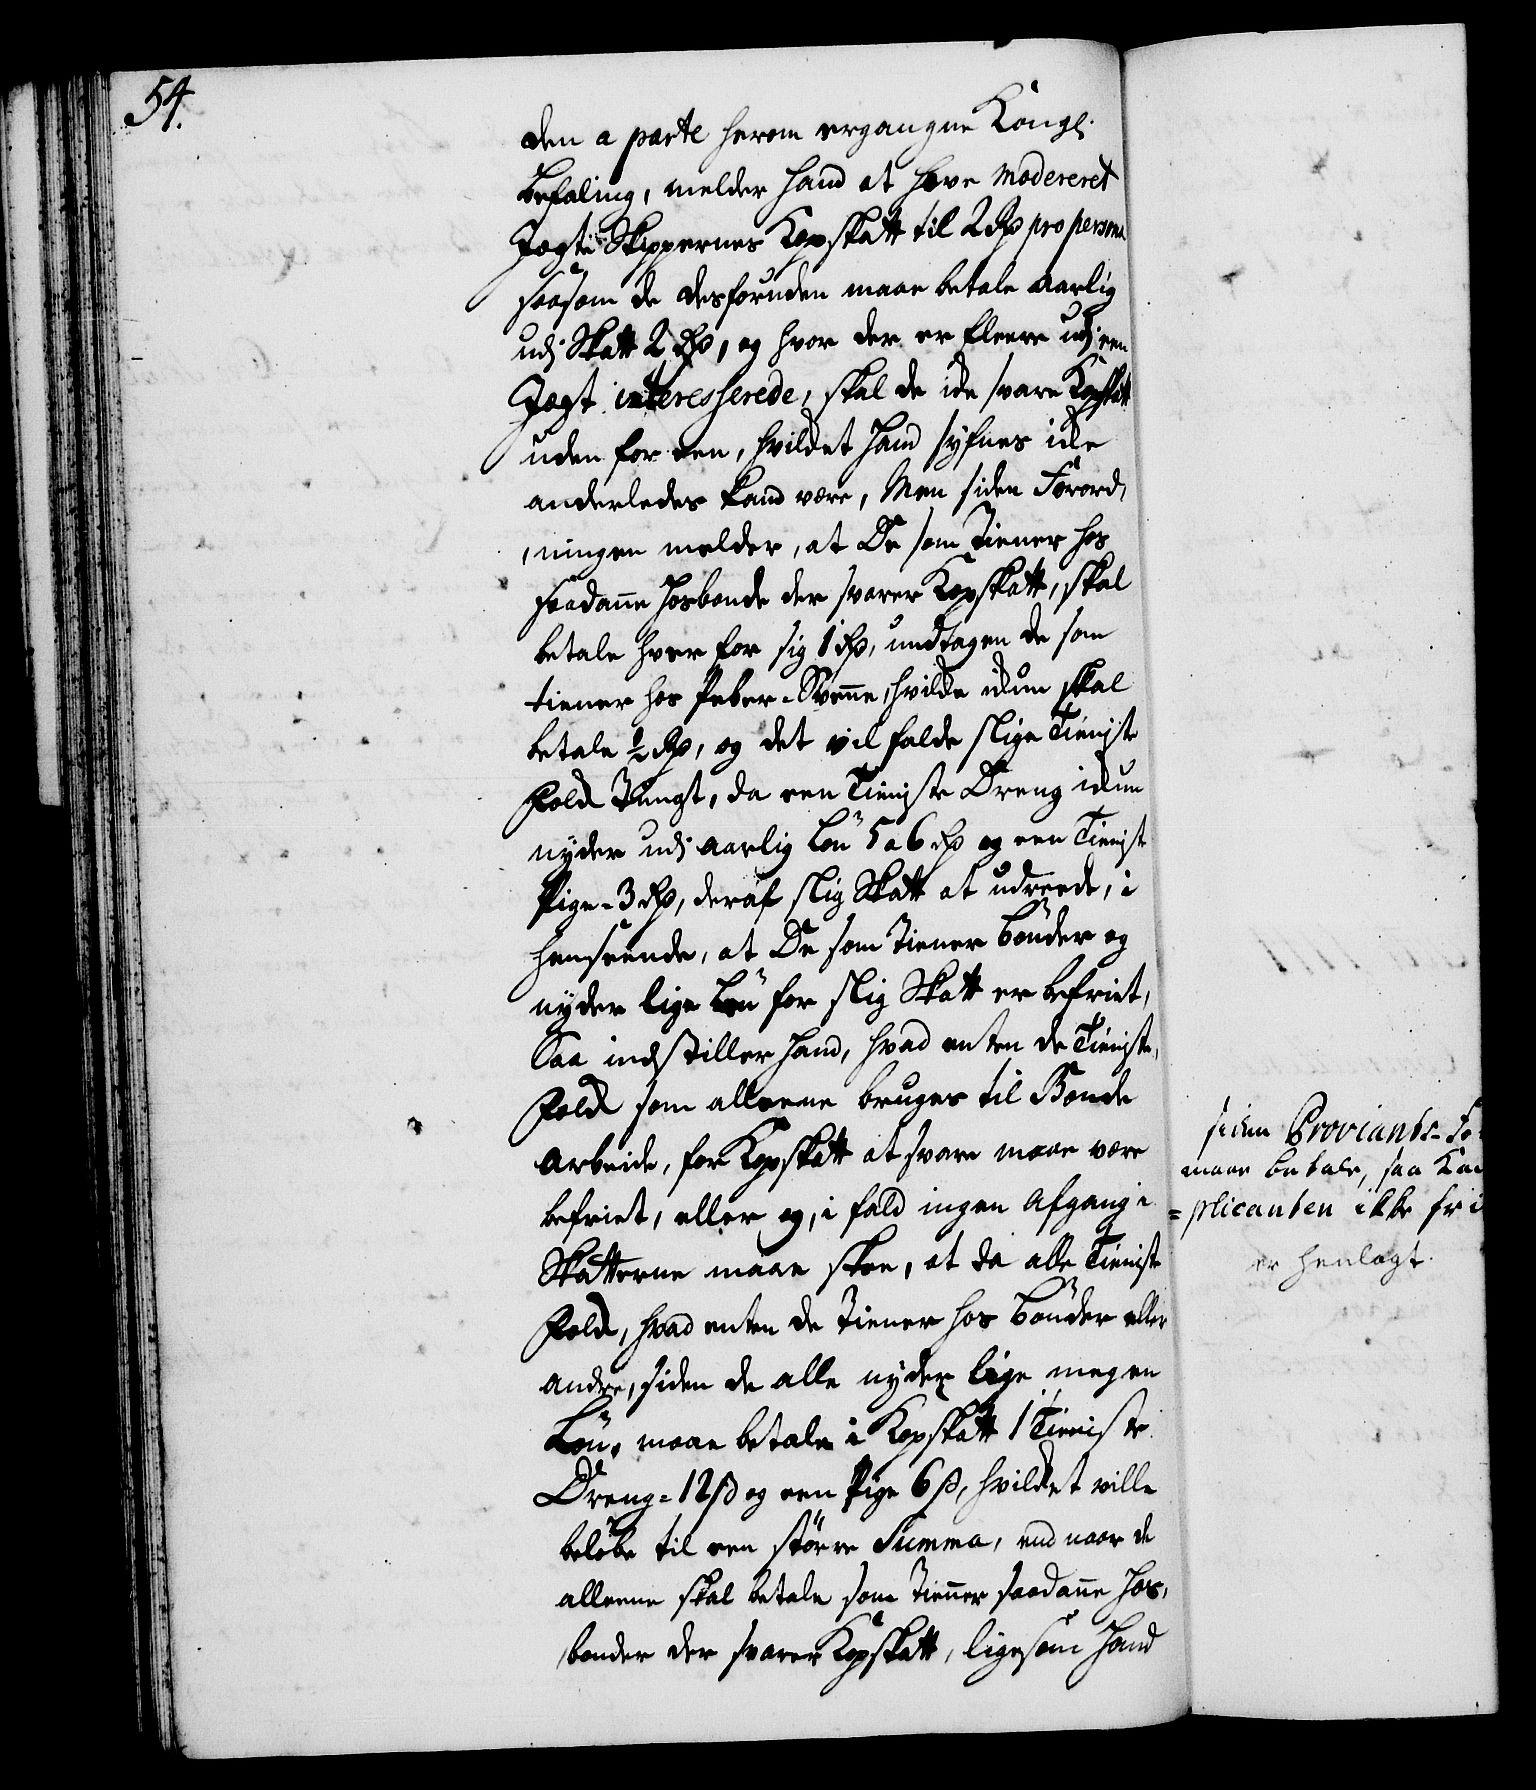 54.
den a parte herom ergangne Kongl.
befaling, melder hand at have modereret
Jagte Skippernes Kopskatt til 2 Rd pro persona
saasom de desforuden maae betale aarlig
udj Skatt 2 Rd, og hvor der er fleere udj een
Jagt interesserede, skal de icke svare Kopskatt
uden for een, hvilcket hand synes icke
anderledes kand være, Men siden Forord,
,ningen melder, at De som Tiener hos
saadanne Hosbonde der svarer Kopskatt, skal
betale hver for sig 1 Rd, undtagen de som
tiener hos Peber-Svenne, hvilcke ickun skal
betale ½ Rd, og det vil falde slige Tieniste
Folck Tungt, da een Tieniste Dreng ickun
nyder udj aarlig Løn 5 a 6 Rd og een Tienist
Pige - 3 Rd, deraf slig Skatt at udreede, i
henseende, at De som Tiener bønder og
nyder lige Løn for slig Skatt er befriet,
Saa indstiller hand, hvad enten de Tieniste,
Folck som alleene bruges til Bonde
Arbeide, for Kopskatt at svare maae være
befriet, eller og, i fald ingen Afgang i
Skatterne maae skee, at da alle Tieniste
Folck, hvad enten de Tiener hos bønder eller
andre, siden de alle nyder lige megen
Løn, maae betale i Kopskatt 1 Tieniste
Dreng - 12 ß og een Pige 6 ß, hvilcket ville
beløbe til een større Summa, end naar de
alleene skal betale som Tiener saadanne Hos,
,bonder der svarer Kopskatt, ligesom Hand
siden Proviants-
maae betale, saa
=plicanten ikke
er henlagt.